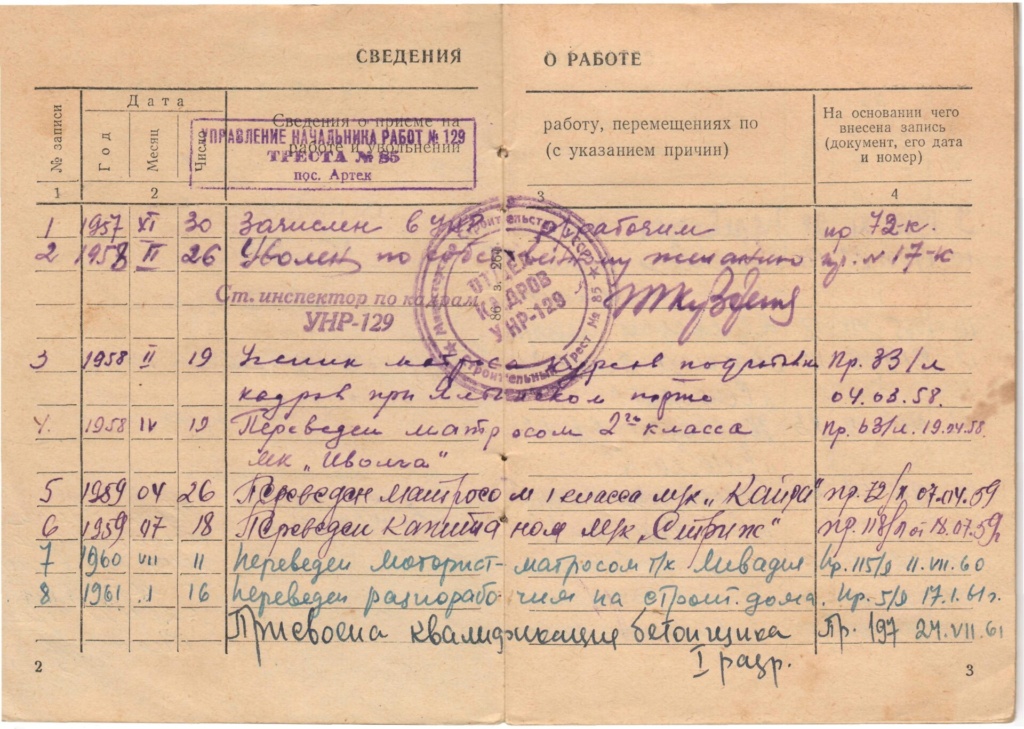 СВЕДЕНИЯ О РАБОТЕ
№ записи
Дата
Год
Месяц
Число
Сведения о приеме на работу, перемещениях по
работе и увольнении (с указанием причин)
На основании чего
внесена запись
(документ, его дата
и номер)
УПРАВЛЕНИЕ НАЧАЛЬНИКА РАБОТ № 129
ТРЕСТА № 85
пос. Артек
1 2 3 4
1 1957 XI 30 Зачислен в УНР рабочим пр 72-к.
2 1958 II 26 Уволен по собственному желанию пр. № 17-к
Ст. инспектор по кадрам
УНР-129
ОТДЕЛ
КАДРОВ
УНР-129
Строительный Трест № 85
86 з. 260
3 1958 II 19 Ученик матроса курсов подготовки Пр. 33/л
кадров при Ялтинском порте 04.03.58.
4. 1958 IV 19 Переведен матросом 2го класса Пр. 63/л. 19.04.58.
МК „Иволга"
5 1959 04 26 Переведен матросом 1 класса м/к „Кайра" пр. 72/л 07.04.59
6 1959 07 18 Переведен капитаном м/к „Стриж" пр. 118/л от 18.07.59г
7 1960 VII 11 Переведен моторист-матросом п/х Ливадия Пр. 115/л 11.VII.60
8 1961 .I 16 Переведен разнорабочим на строит. дома. Пр. 5/л 17.1.61г.
Присвоена квалификация бетонщика Пр. 197 24.VII.61
I разр.
2 3